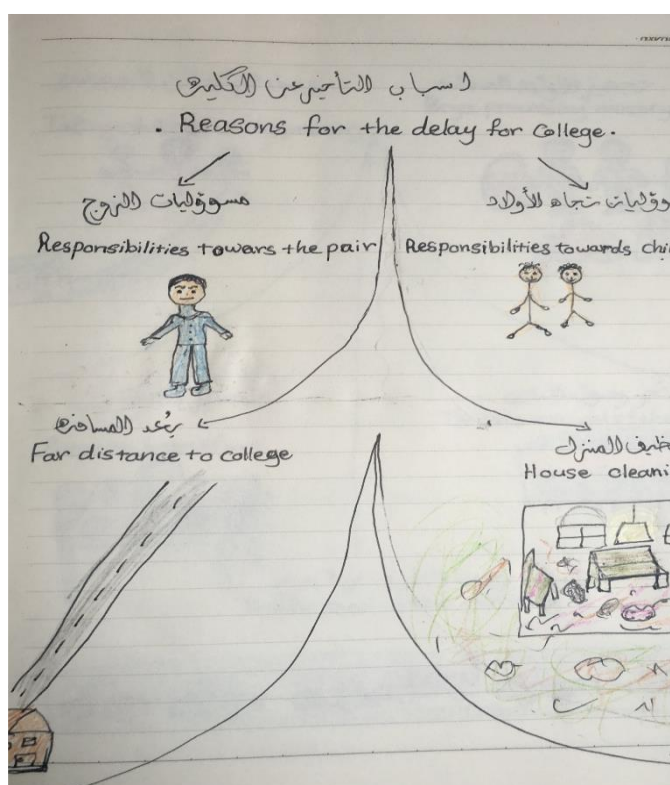 اسباب التأخير عن الكلية
. Reasons for the delay for college.
مسوؤليات الزوج
Responsibilities towars the pair
وؤليات تجاه الأولاد
Responsibilities towards chi
بُعد المسافة
Far distance to college
ظيف المنزل
House cleani